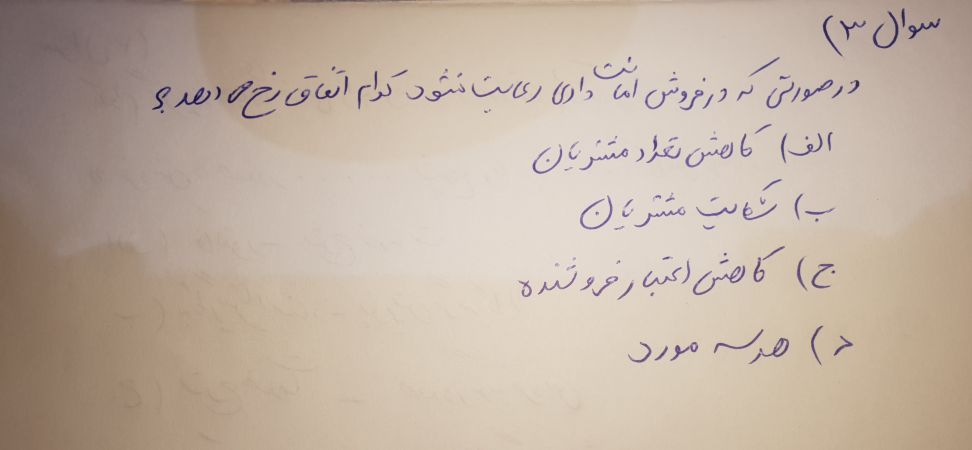 سوال ۳)
در صورتی که در فروش امانت داری رعایت نشود کدام اتفاق رخ می دهد؟
الف) کاهش تعداد مشتریان
ب) شکایت مشتریان
ج) کاهش اعتبار فروشنده
د) هر سه مورد